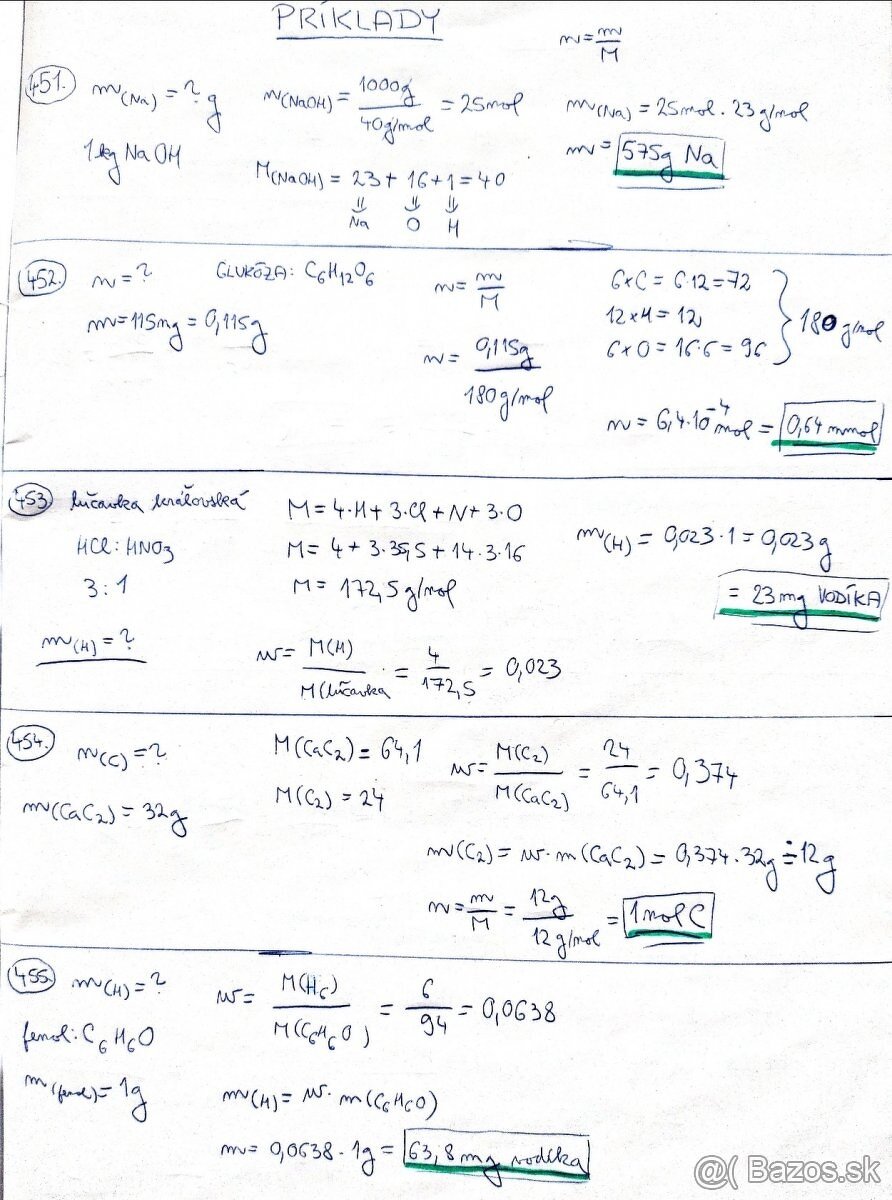 PRÍKLADY
n = m/M
451. m(Na) = ? g
1kg NaOH
n(NaOH) = 1000g / 40g/mol = 25mol
M(NaOH) = 23 + 16 + 1 = 40
⇓ ⇓ ⇓
Na O H
m(Na) = 25mol · 23 g/mol
m = 575g Na
452. n = ?
m = 115mg = 0,115g
GLUKÓZA: C6H12O6
n = m/M
n = 0,115g / 180g/mol
6×C = 6·12 = 72
12×H = 12
6×O = 16·6 = 96
180 g/mol
n = 6,4·10⁻⁴ mol = 0,64 mmol
453. lúčavka kráľovská
HCl : HNO3
3 : 1
m(H) = ?
M = 4·H + 3·Cl + N + 3·O
M = 4 + 3·35,5 + 14·3·16
M = 172,5 g/mol
w = M(H) / M(lúčavka = 4 / 172,5 = 0,023
m(H) = 0,023 · 1 = 0,023g
= 23 mg VODÍKA
454. n(C) = ?
m(CaC2) = 32g
M(CaC2) = 64,1
M(C2) = 24
w = M(C2) / M(CaC2) = 24 / 64,1 = 0,374
m(C2) = w · m(CaC2) = 0,374 · 32g ≐ 12g
n = m/M = 12g / 12 g/mol = 1 mol C
455. m(H) = ?
fenol: C6H6O
m(fenol) = 1g
w = M(H6) / M(C6H6O) = 6 / 94 = 0,0638
m(H) = w · m(C6H6O)
m = 0,0638 · 1g = 63,8 mg vodíka
@( Bazos.sk